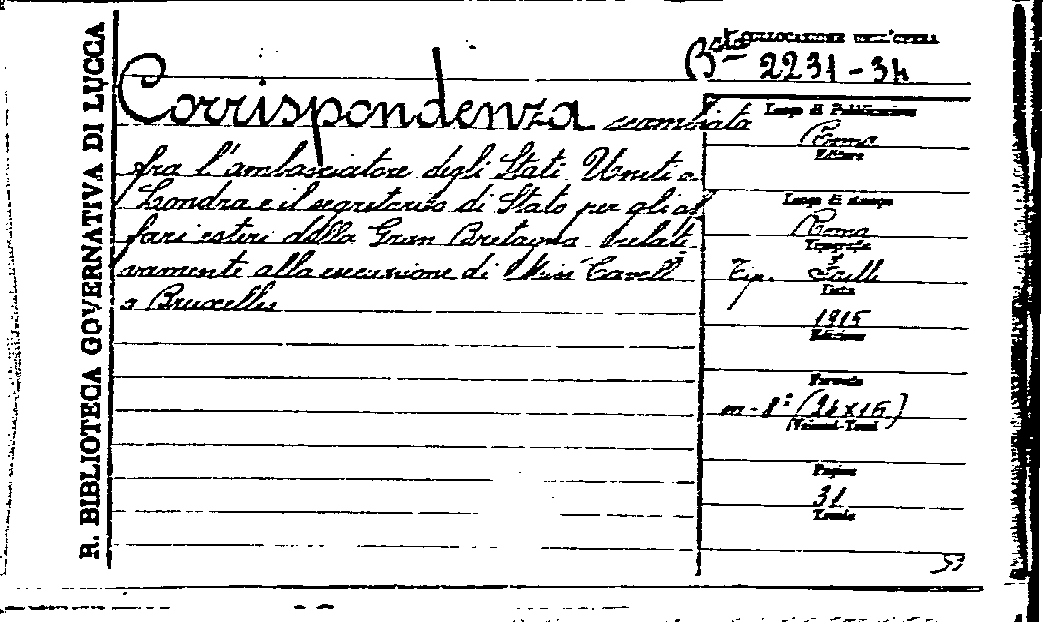 R. BIBLIOTECA GOVERNATIVA DI LUCCA
COLLOCAZIONE DELL'OPERA
Bta 2231-34
Corrispondenza scambiata
fra l'ambasciatore degli Stati Uniti a
Londra e il segretario di Stato per gli af
fari esteri della Gran Bretagna relati
vamente alla esecuzione di Miss Cavell
a Bruxelles
Luogo di Pubblicazione
Roma
Editore
Luogo di stampa
Roma
Tipografia
Tip.
Data
1915
Edizione
Formato
in-8° (24x15)
Volumi-Tomi
Pagine
31
Tavole